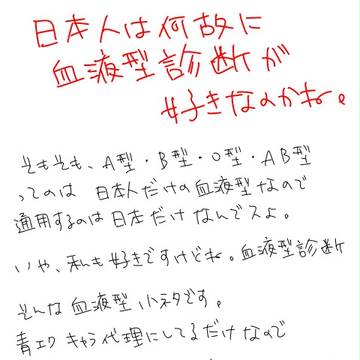 日本人は何故に
血液型診断が
好きなのかね。
そもそも、A型・B型・O型・AB型
ってのは 日本人だけの血液型なので
通用するのは日本だけなんでスよ。
いや、私も好きですけどね。血液型診断
そんな血液型小ネタです。
青エクキャラ代理にしてるだけなので